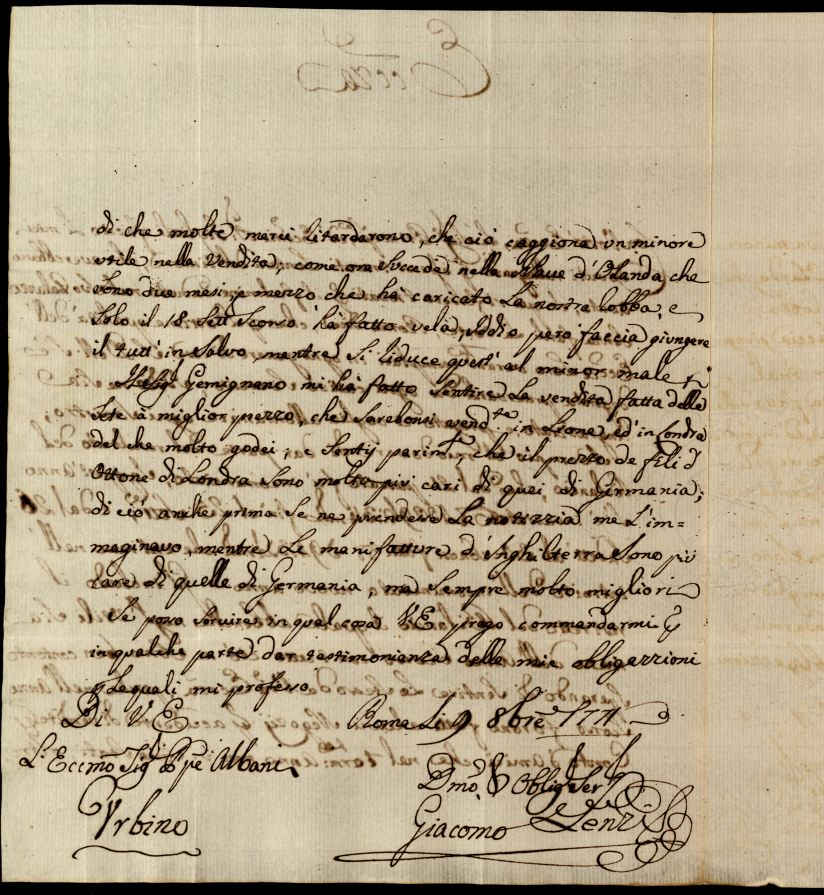 di che molte merci ritardarono, che ciò caggiona un minore
utile nella vendita; come ora succede nella Nave d'Olanda che
sono due mesi, e mezzo che ha caricato la nostra robba, e
solo il 18. Sett. scorso ha fatto vela, Iddio però faccia giungere
il tutt' in salvo, mentre si riduce quest' al minor male
Il Sig. Gemignano mi ha fatto sentire la vendita fatta delle
sete à miglior prezzo, che sarebonsi vend.te in Leone, ed in Londra
del che molto godei; e sentij parim.te, che il prezzo de fili d'
Ottone di Londra sono molto più cari di quei di Germania;
di ciò anche prima se ne prendesse la notizzia me l'im=
maginavo, mentre le manifatture d'Inghilterra sono più
care di quelle di Germania, ma sempre molto migliori
Se posso servire in qual cosa V.E. prego commandarmi
in qualche parte dar testimonianza delle mie obligazzioni
le quali mi professo
Di V. E. Roma Li 9 8bre 1771
L'Eccmo Sig. Ppe Albani
Urbino
Dmo, Oblig Ser
Giacomo Lenzi